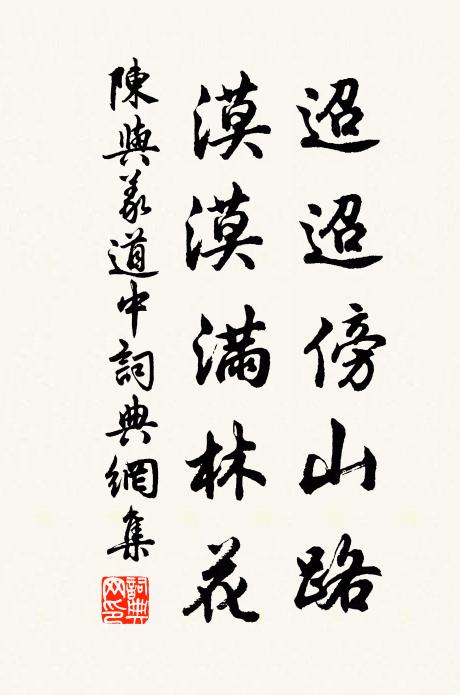 迢迢傍山路
漠漠滿林花
陳與義道中詞典網集
詞典網印